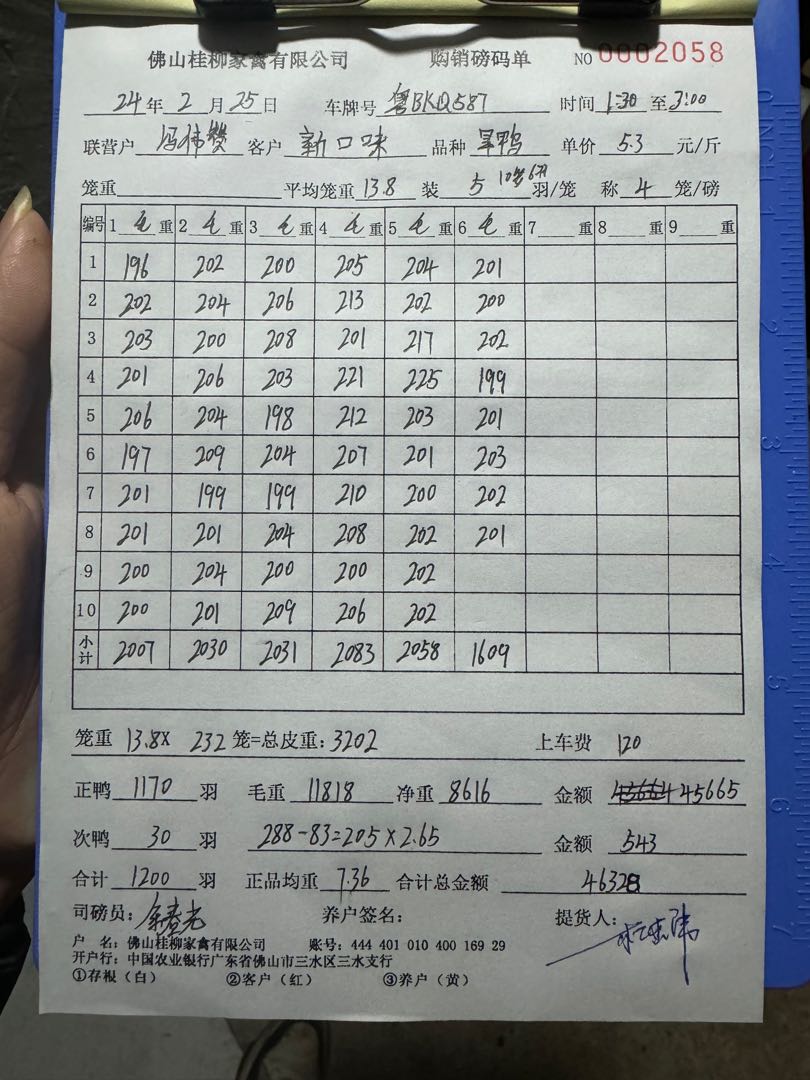 佛山桂柳家禽有限公司 购销磅码单 NO 0002058
24年2月25日 车牌号 粤BKQ587 时间 1:30 至 3:00
联营户 冯伟赞 客户 新口味 品种 旱鸭 单价 5.3 元/斤
笼重 平均笼重 13.8 装 5 羽/笼 称 4 笼/磅
编号 1 毛 重 2 毛 重 3 毛 重 4 毛 重 5 毛 重 6 毛 重 7 重 8 重 9 重
1 196 202 200 205 204 201
2 202 204 206 213 202 200
3 203 200 208 201 217 202
4 201 206 203 221 225 199
5 206 204 198 212 203 201
6 197 209 204 207 201 203
7 201 199 199 210 200 202
8 201 201 204 208 202 201
9 200 204 200 200 202
10 200 201 209 206 202
小计 2007 2030 2031 2083 2058 1609
笼重 13.8X 232 笼=总皮重: 3202 上车费 120
正鸭 1170 羽 毛重 11818 净重 8616 金额 45665
次鸭 30 羽 288-83=205×2.65 金额 543
合计 1200 羽 正品均重 7.36 合计总金额 46328
司磅员: 养户签名: 提货人:
户 名: 佛山桂柳家禽有限公司 账号: 444 401 010 400 169 29
开户行: 中国农业银行广东省佛山市三水区三水支行
①存根(白) ②客户(红) ③养户(黄)